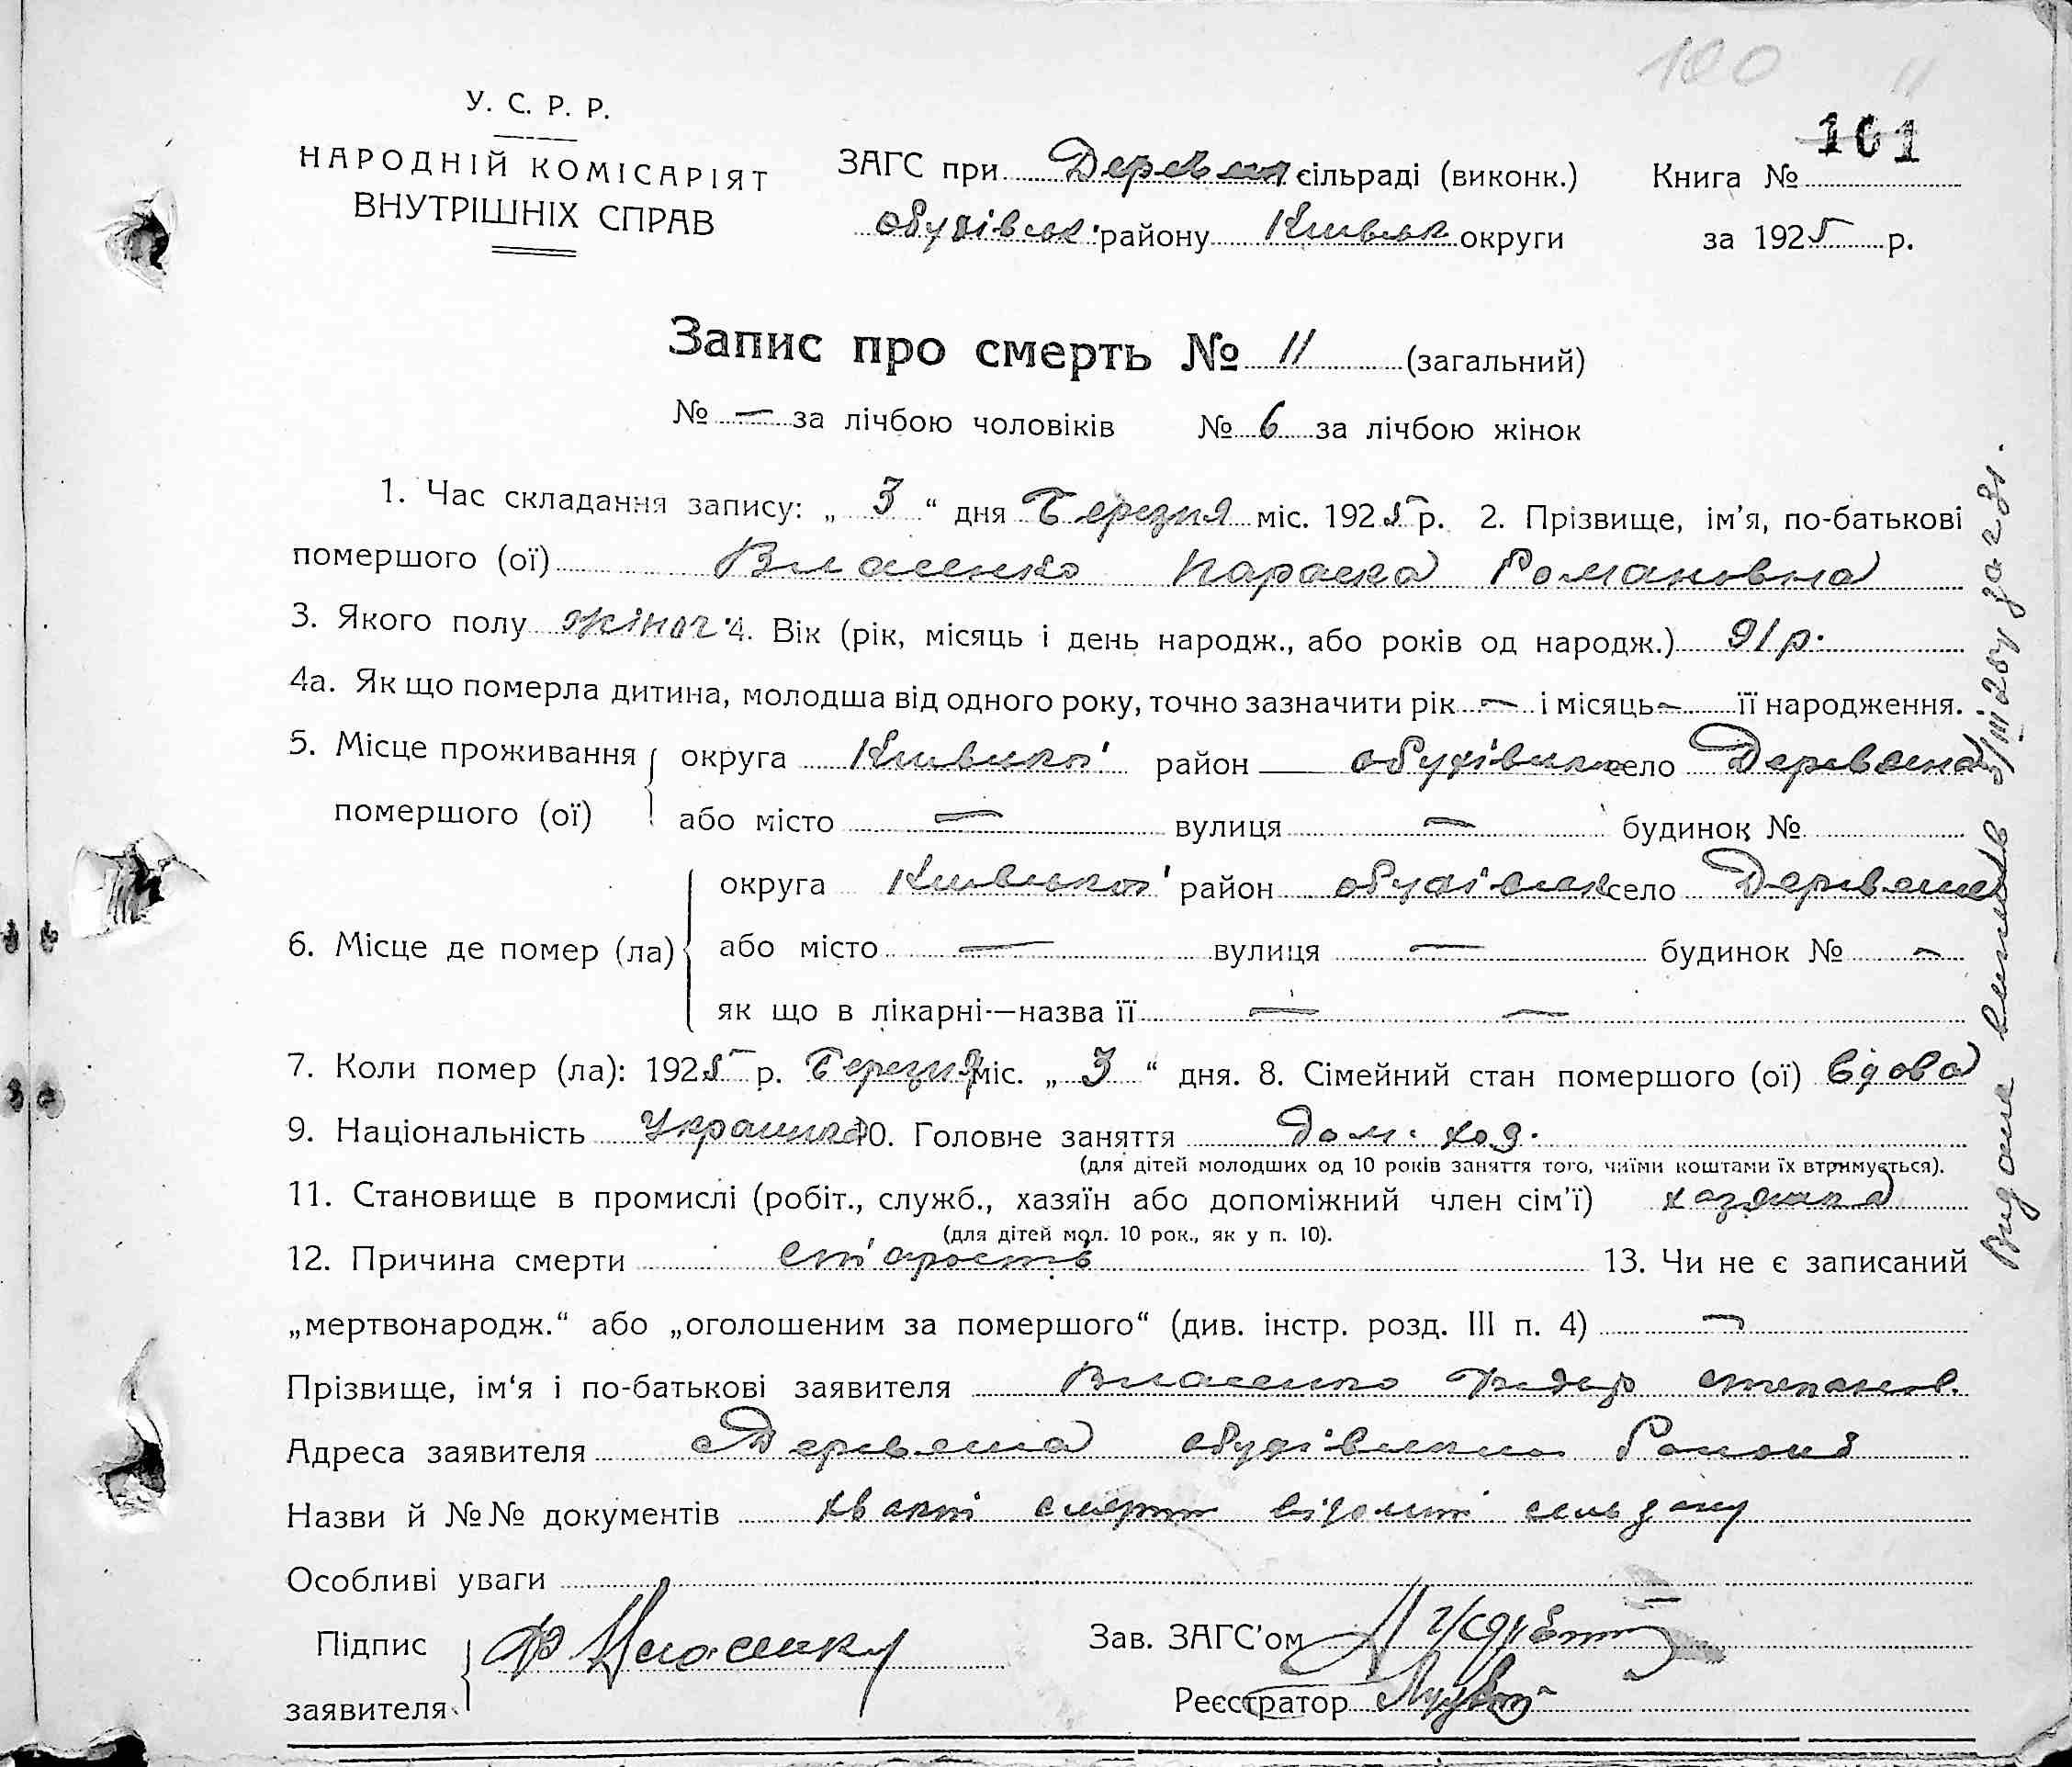 100 11
101
У. С. Р. Р.
НАРОДНІЙ КОМІСАРІЯТ
ВНУТРІШНІХ СПРАВ
ЗАГС при Деревян. сільраді (виконк.) Книга №
обухівськ. району Київськ округи за 1925 р.
Запис про смерть № 11 (загальний)
№ — за лічбою чоловіків № 6 за лічбою жінок
1. Час складання запису: „ 3 “ дня Березня міс. 1925 р. 2. Прізвище, ім’я, по-батькові
помершого (ої) Власенко Параска Романовна
3. Якого полу жіноч. 4. Вік (рік, місяць і день народж., або років од народж.) 91 р.
4а. Як що померла дитина, молодша від одного року, точно зазначити рік — і місяць — її народження.
5. Місце проживання округа Київської район обухівськ село Деревяна
помершого (ої) або місто — вулиця — будинок №
округа Київської район обухівськ село Деревяна
6. Місце де помер (ла) або місто — вулиця — будинок № —
як що в лікарні—назва її — —
7. Коли помер (ла): 1925 р. Березня міс. „ 3 “ дня. 8. Сімейний стан помершого (ої) Вдова
9. Національність Українка 10. Головне заняття Дом. хоз.
(для дітей молодших од 10 років заняття того, чиїми коштами їх втримується).
11. Становище в промислі (робіт., служб., хазяїн або допоміжний член сім’ї) хазяйка
(для дітей мол. 10 рок., як у п. 10).
12. Причина смерти старость 13. Чи не є записаний
„мертвонародж.“ або „оголошеним за помершого“ (див. інстр. розд. III п. 4) —
Прізвище, ім‘я і по-батькові заявителя Власенко Федор степанов.
Адреса заявителя с Деревяна обухівського Району
Назви й №№ документів смерти
Особливі уваги
Підпис Ф Власенко Зав. ЗАГС’ом
заявителя Реєстратор
Видано витяг 3/III за № 31.